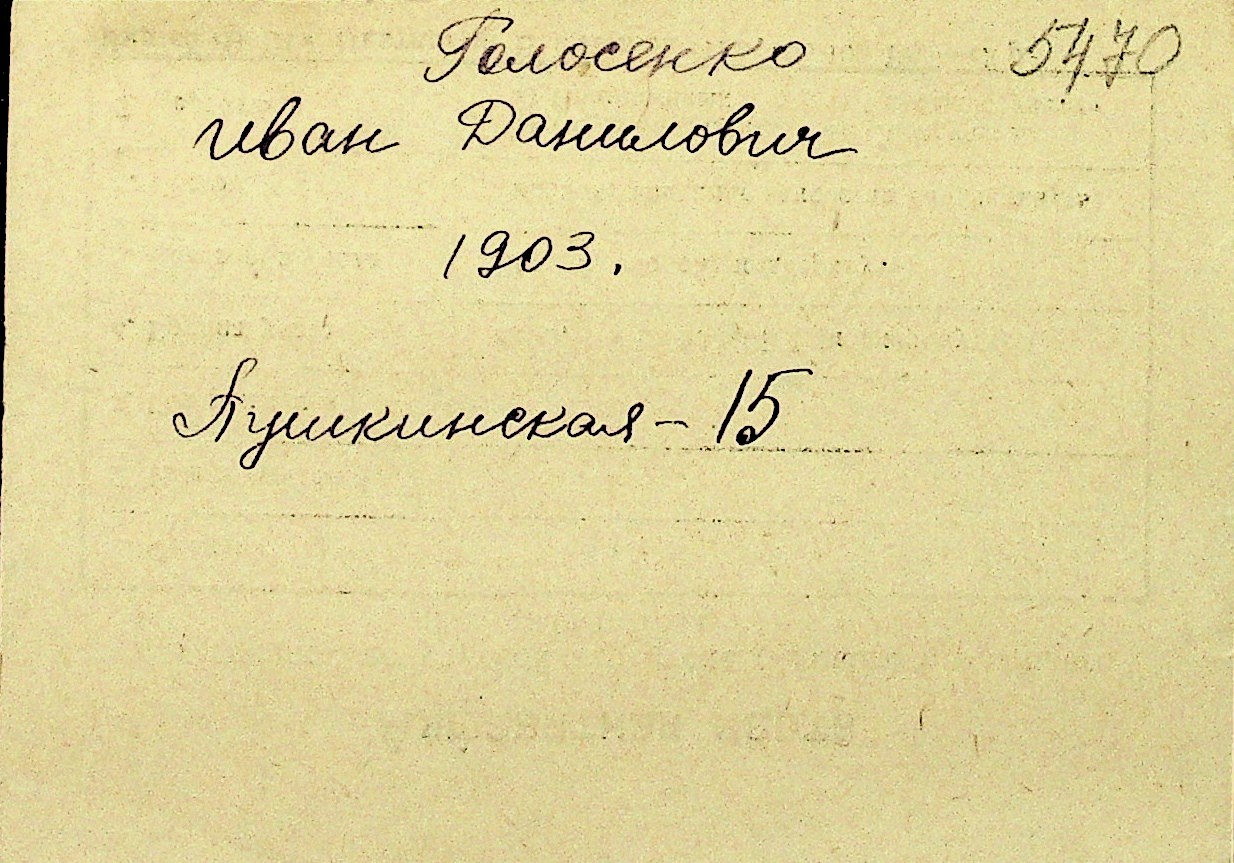 Голосенко 5470
Иван Данилович
1903.
Пушкинская - 15